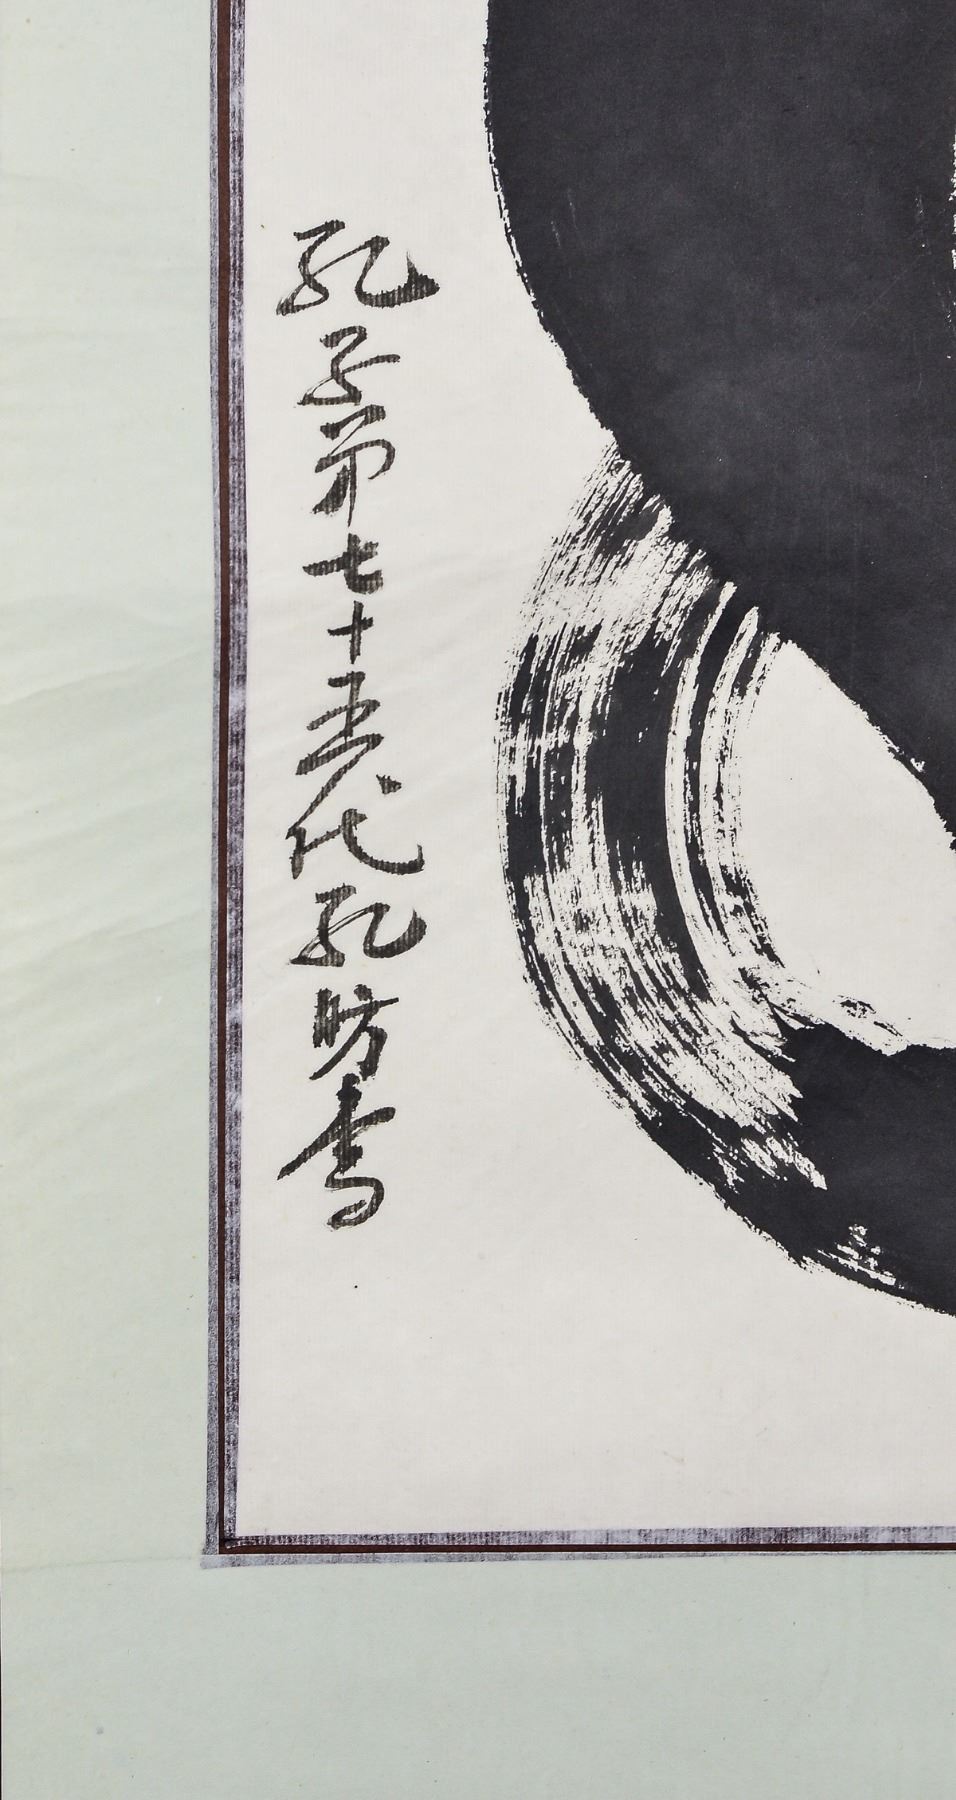 孔子第七十五代孔昉書